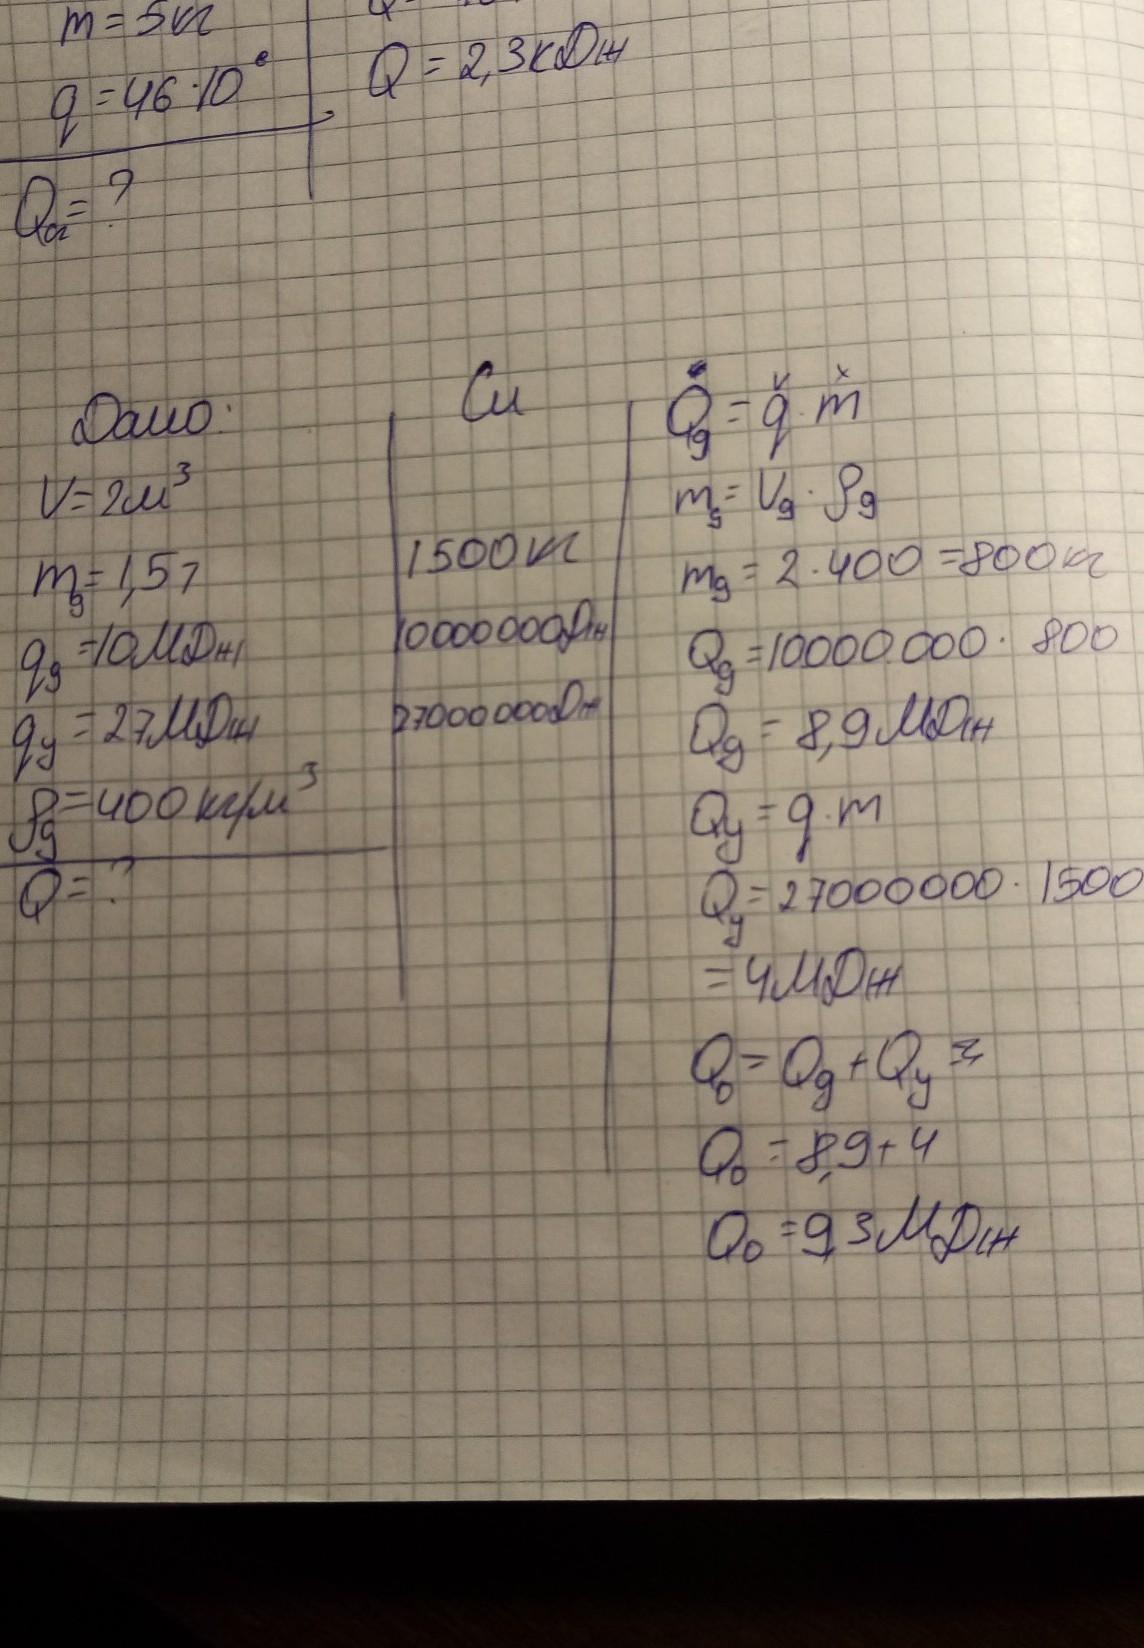 m = 5кг
q = 46·10⁶
Qа = ?
Q = 2,3кДж
Дано:
V = 2м³
mg = 1,5т
qg = 10МДж
qy = 27МДж
ρg = 400кг/м³
Q = ?
Си
1500кг
10000000Дж
27000000Дж
Qg = q · m
mg = Vg · ρg
mg = 2·400 = 800кг
Qg = 10000.000 · 800
Qg = 8,9МДж
Qy = q·m
Qy = 27000000 · 1500
= 4МДж
Q0 = Qg + Qy =
Q0 = 8,9+4
Q0 = 9,3МДж